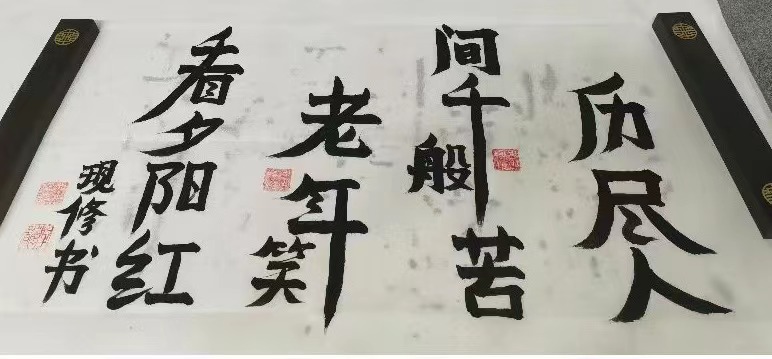 历尽人
间千般苦
老年笑
看夕阳红
现修书